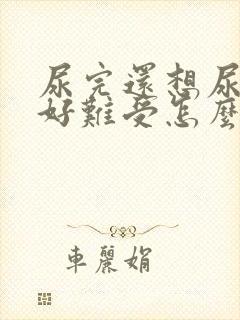 尿完還想尿
好難受怎麼
車麗娟